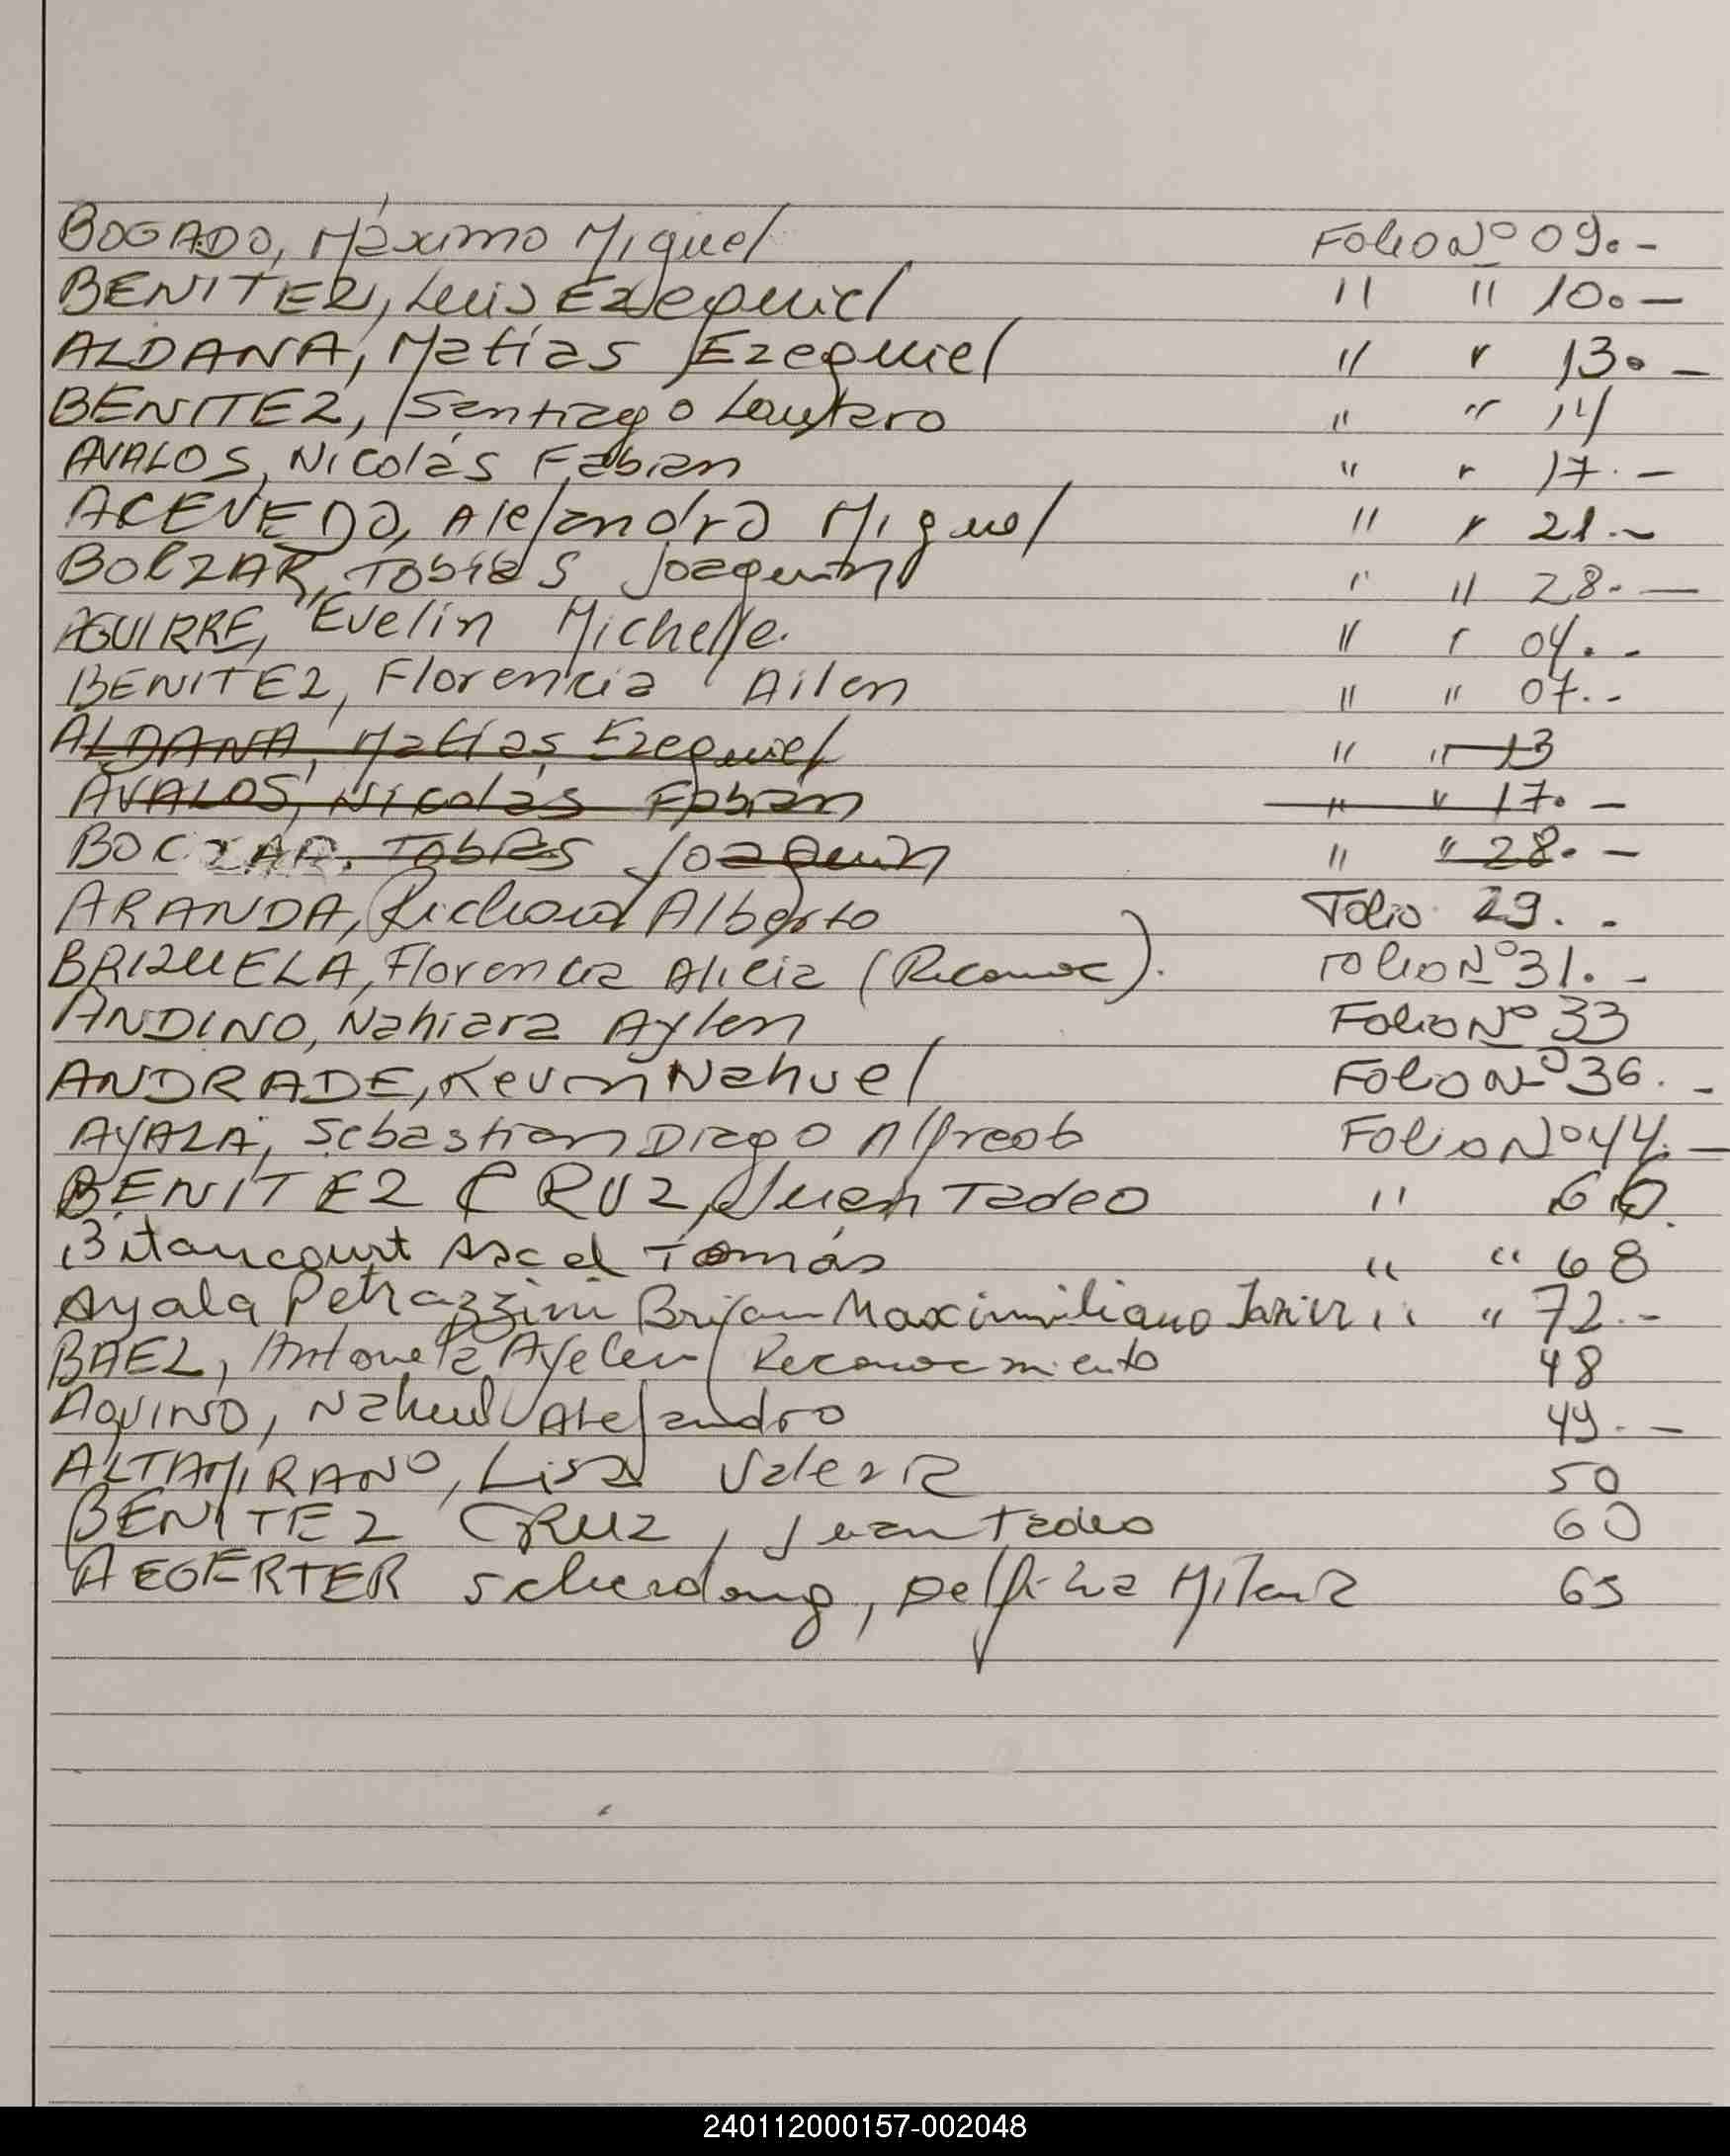 BOGADO, Máximo Miguel Folio Nº 09.-
BENITEZ, Luis Ezequiel " " 10.-
ALDANA, Matías Ezequiel " " 13.-
BENITEZ, Santiago Lautaro " " 14
AVALOS, Nicolás Fabian " " 17.-
ACEVEDO, Alejandro Miguel " " 21.-
BOLZAR, Tobías Joaquin " " 28.-
AGUIRRE, Evelin Michelle. " " 04.-
BENITEZ, Florencia Ailen " " 07.-
ALDANA, Matías Ezequiel " " 13
AVALOS, Nicolás Fabián " " 17.-
BOCZAR, Tobías Joaquin " " 28.-
ARANDA, Richard Alberto Folio 29.-
BRIZUELA, Florencia Alicia (Reconoc). Folio Nº 31.-
ANDINO, Nahiara Aylen Folio Nº 33
ANDRADE, Kevin Nahuel Folio Nº 36.-
AYALA, Sebastian Diego Alfredo Folio Nº 44.-
BENITEZ CRUZ, Juan Tadeo " 60.
Bitancourt Axel Tomás " " 68
Ayala Petrazzini Brian Maximiliano Javier " " 72.-
BAEZ, Antonela Ayelen Reconocimiento 48
AQUINO, Nahuel Alejandro 49.-
ALTAMIRANO, Lisa Valeria 50
BENITEZ CRUZ, Juan Tadeo 60
AEGERTER, Delfina Milena 65
240112000157-002048